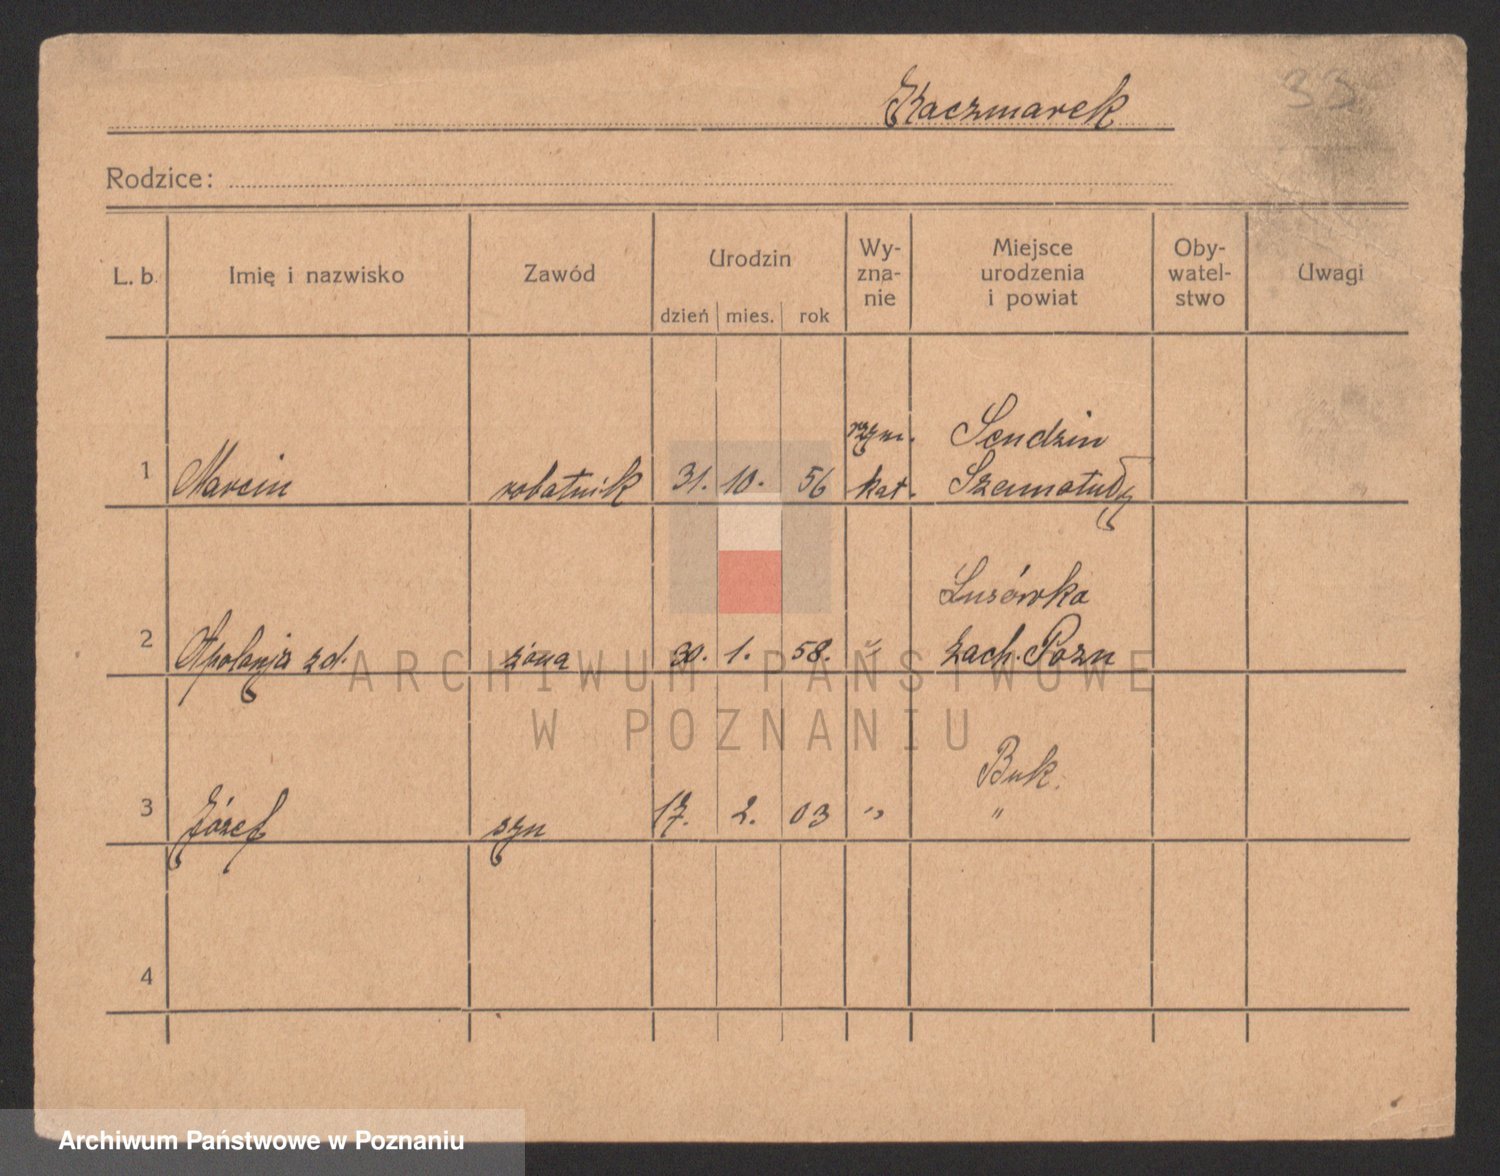 33
Kaczmarek
Rodzice:
L. b. Imię i nazwisko Zawód Urodzin dzień mies. rok Wy-zna-nie Miejsce urodzenia i powiat Oby-watel-stwo Uwagi
rzym. Sendzin
1 Marcin robotnik 31. 10. 56 kat. Szamotuły
Lusówka
2 Apolonja zd. żona 30. 1. 58. " zach. Pozn
Buk.
3 Józef syn 17. 2. 03 " "
4
ARCHIWUM PAŃSTWOWE
W POZNANIU
Archiwum Państwowe w Poznaniu